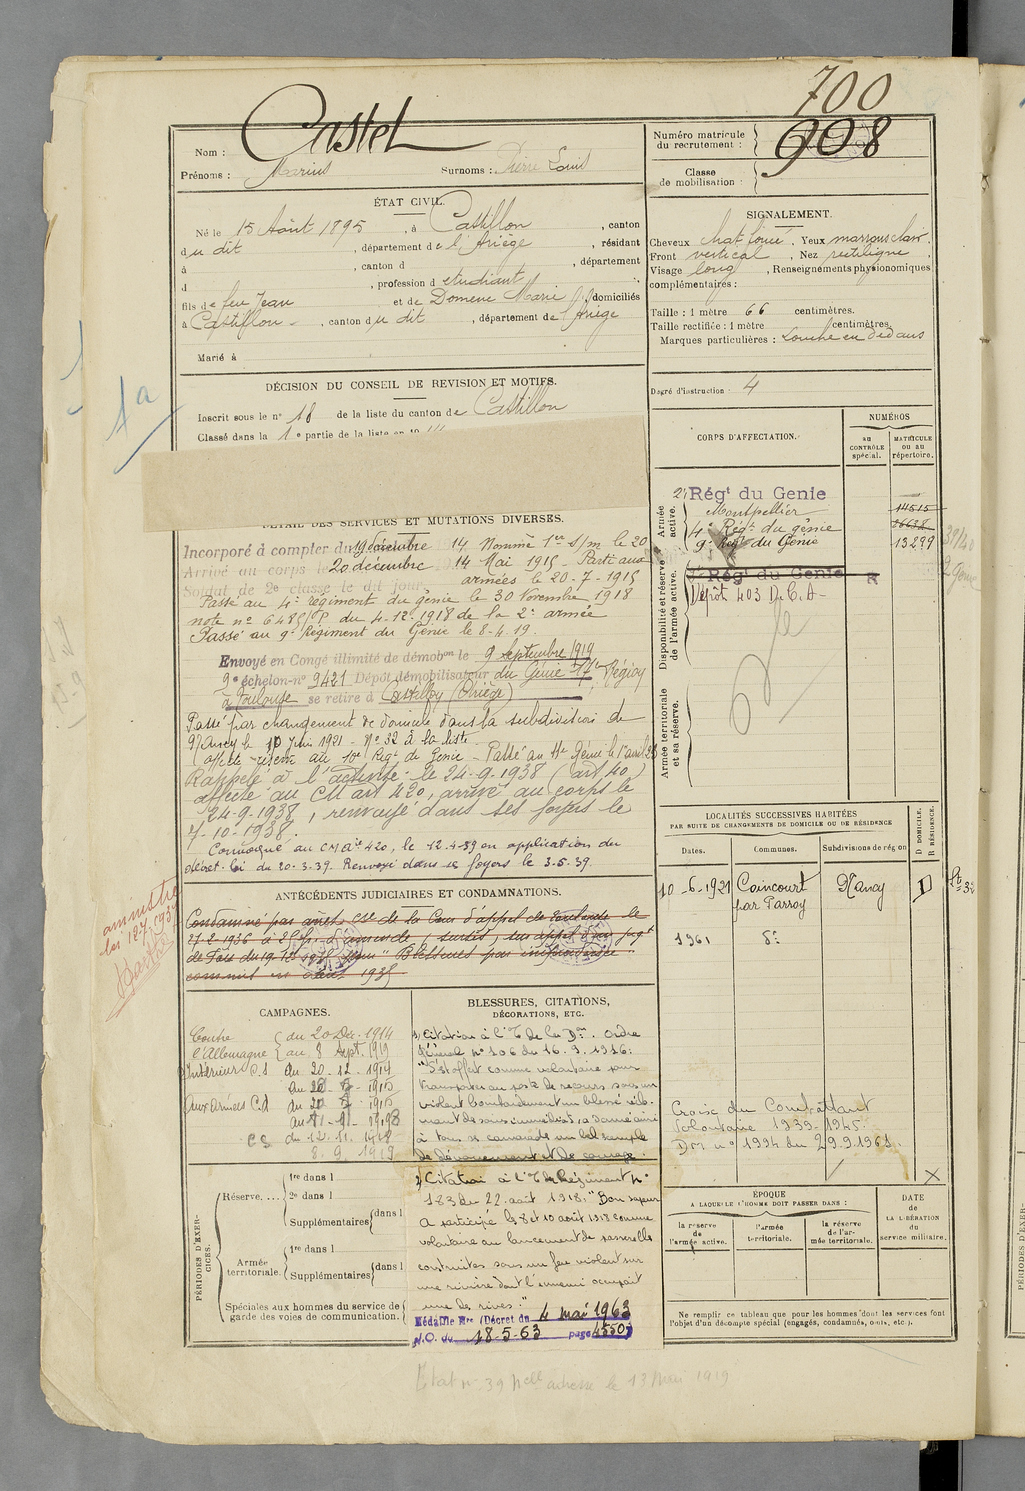 700
908
Nom : Castel
Prénoms : Marius Surnoms : Pierre Louis
Numéro matricule du recrutement :
Classe de mobilisation :
ÉTAT CIVIL.
Né le 15 Août 1895, à Castillon, canton
du dit, département de l'Ariège, résidant
à , canton d , département
d , profession d etudiant
fils de feu Jean et de Domene Marie, domiciliés
à Castillon, canton du dit, département de l'Ariège
Marié à
SIGNALEMENT.
Cheveux chat foncé. Yeux marrons clair.
Front vertical, Nez rectiligne,
Visage long, Renseignements physionomiques
complémentaires :
Taille : 1 mètre 66 centimètres.
Taille rectifiée : 1 mètre centimètres.
Marques particulières : Louche en dedans
Degré d'instruction : 4
DÉCISION DU CONSEIL DE REVISION ET MOTIFS.
Inscrit sous le n° 18 de la liste du canton de Castillon
Classé dans la 1e partie de la liste en 19
1a
DÉTAIL DES SERVICES ET MUTATIONS DIVERSES.
Incorporé à compter du 19 décembre 14 Nommé 1er s/m le 20
Arrivé au corps le 20 décembre 14 Mai 1915 - Parti aux
Soldat de 2e classe le dit jour armées le 20-7-1915
Passé au 4e régiment du génie le 30 Novembre 1918
note n° 6485/P du 4-12-1918 de la 2e armée
Passé au 9e Régiment du Génie le 8-4-19.
Envoyé en Congé illimité de démobon le 9 septembre 1919
9e échelon n° 9421 Dépôt démobilisateur du Génie 17e Région
à Toulouse se retire à Castillon (Ariège)
Passé par changement de domicile dans la subdivision de
Nancy le 10 Juin 1921 - N° 32 à la liste
affecté réserve au 10e Régt de Génie - Passé au 11e Génie le 1er avril
Rappelé à l'activité le 24-9-1938 (art 40)
affecté au CM art 420, arrivé au corps le
24-9-1938, renvoyé dans ses foyers le
7-10-1938.
Convoqué au CM Aie 420, le 12-4-39 en application du
décret-loi du 20-3-39. Renvoyé dans ses foyers le 3.5.39.
CORPS D'AFFECTATION.
NUMÉROS
AU CONTRÔLE spécial.
MATRICULE ou au répertoire.
Armée active.
2e Régt du Genie
Montpellier 14515
4e Régt du génie 26638
9e Régt du Génie 13299
Disponibilité et réserve de l'armée active.
Régt du Genie R
Dépôt 403 D.C.A-
Armée territoriale et sa réserve.
LOCALITÉS SUCCESSIVES HABITÉES
PAR SUITE DE CHANGEMENTS DE DOMICILE OU DE RÉSIDENCE
Dates. Communes. Subdivisions de région
D DOMICILE. R RÉSIDENCE.
10-6-1921 Coincourt par Parroy Nancy D
1961 do
ANTÉCÉDENTS JUDICIAIRES ET CONDAMNATIONS.
amnistié
Condamné par arrêt de la Cour d'appel de le
27-2-1936 à 25 fr. d'amende, sursis, sur appel d'un jugt
de du 19-12-1935 pour "Blessures par imprudence"
commis en août 1935
CAMPAGNES.
Contre l'Allemagne (du 20 Déc. 1914
au 8 Sept. 1919
Intérieur C.S du 20-12-1914
Aux armées C.D
CS du 12.11.1918
8.9.1919
BLESSURES, CITATIONS,
DÉCORATIONS, ETC.
1) Citation à l'O de la Don. Ordre
Général n° 106 du 16.9.1916:
"S'est offert comme volontaire pour
transporter au poste de secours sous un
violent bombardement un blessé
à tous ses camarades un bel exemple
de dévouement et de courage.
2) Citation à l'O du Régiment n°
183 du 22 août 1918: "Bon sapeur
A participé le 8 et 10 août 1918 comme
volontaire au lancement de passerelles
construites sous un feu violent sur
une rivière dont l'ennemi occupait
une des rives."
Médaille Mre (Décret du 4 mai 1963
J.O. du 18-5-63 page 4550)
Croix du Combattant
Volontaire 1939-1945.
Don n° 1994 du 29.9.1961.
PÉRIODES D'EXERCICES.
Réserve.... 1re dans l
2e dans l
Supplémentaires dans l
Armée territoriale. 1re dans l
Supplémentaires dans l
Spéciales aux hommes du service de
garde des voies de communication.
ÉPOQUE
A LAQUELLE L'HOMME DOIT PASSER DANS :
la réserve de l'armée active.
l'armée territoriale.
la réserve de l'armée territoriale.
DATE de LA LIBÉRATION du service militaire.
Ne remplir ce tableau que pour les hommes dont les services font
l'objet d'un décompte spécial (engagés, condamnés, omis, etc.).
Etat n° 39 Nelle adresse le 13 Mai 1919